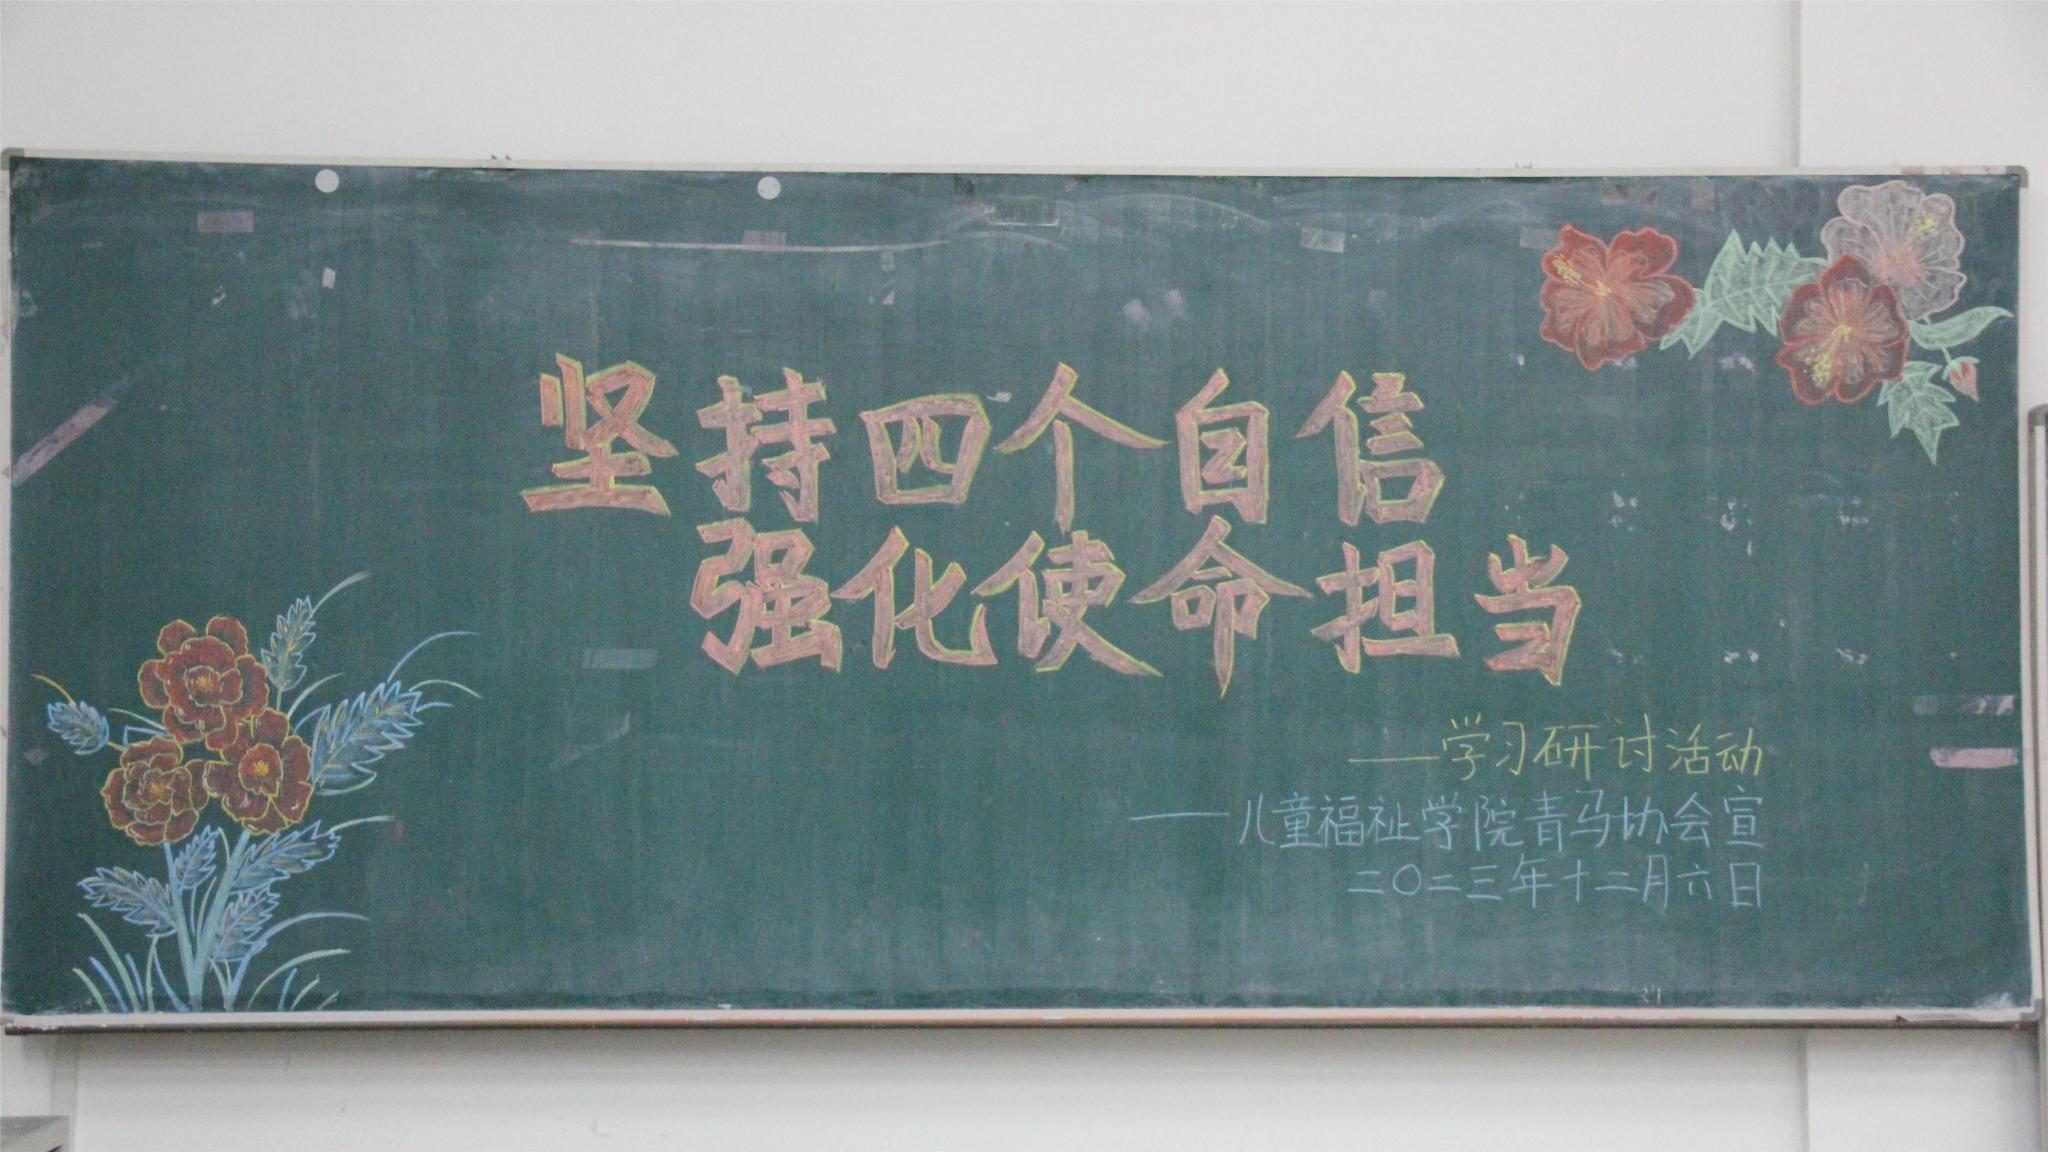 坚持四个自信
强化使命担当
——学习研讨活动
——儿童福祉学院青马协会宣
二〇二三年十二月六日